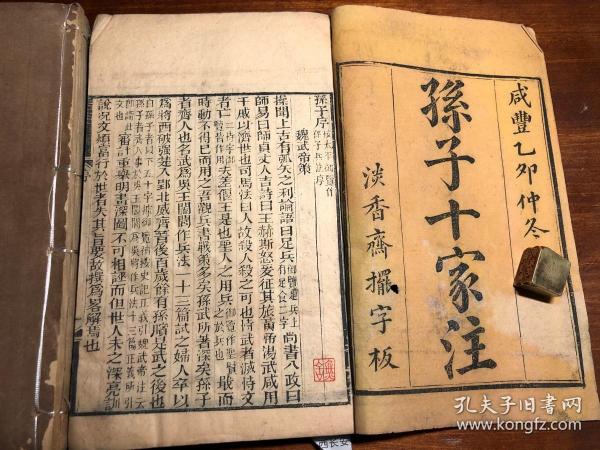 咸豐乙卯仲冬
孫子十家注
淡香齋擺字板
孫子序
魏武帝撰
操聞上古有弧矢之利論語曰足兵 尚書八政曰
師易曰師貞丈人吉詩曰王赫斯怒爰征其旅黃帝湯武咸用
干戚以濟世也司馬法曰人故殺人殺之可也恃武者滅恃文
者亡 夫差偃王是也聖人之用兵 戢而
時動不得已而用之吾觀兵書戰策多矣孫武所著深矣孫子
者齊人也名武爲吳王闔閭作兵法一十三篇試之婦人卒以
爲將西破強楚入郢北威齊晉後百歲餘有孫臏是武之後也
審計重舉明畫深圖不可相誣而但世人未之深亮訓
說況文煩富行於世者失其旨要故撰爲畧解焉也
孔夫子旧书网
www.kongfz.com